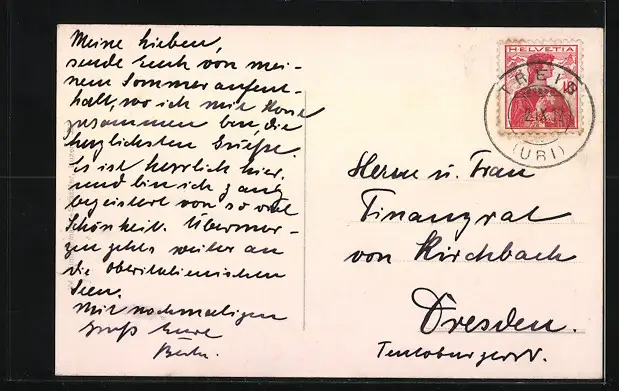 Meine Lieben,
sende Euch von mei-
nem Sommeraufent-
halt, wo ich mit
zusammen bin, die
herzlichsten Grüße.
Es ist herrlich hier,
und bin ich ganz
begeistert von so viel
Schönheit. Übermor-
gen gehts weiter an
die Oberitalienischen
Seen.
Mit nochmaligem
Gruß Eure
HELVETIA
(URI)
Herrn u. Frau
Finanzrat
von Kirchbach
Dresden.